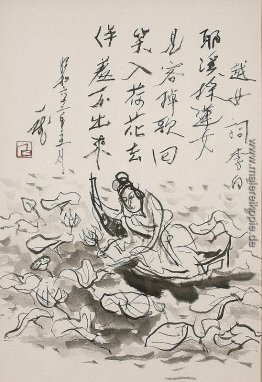 越女詞 李白
耶溪採蓮女
見客棹歌回
笑入荷花去
佯羞不出来
www.meisterkopie.de